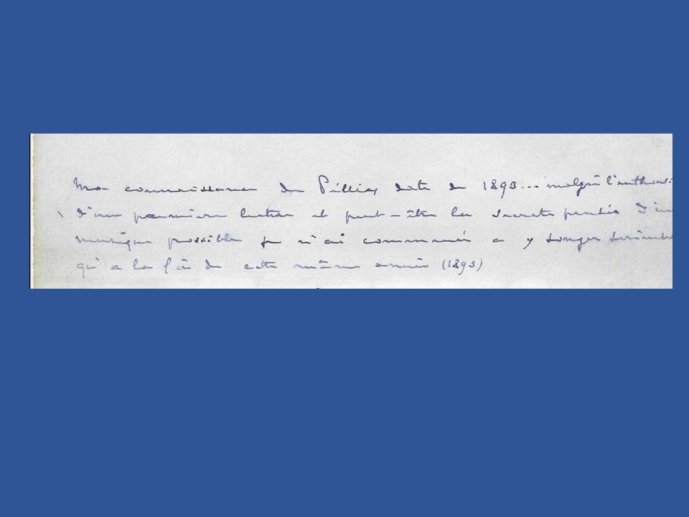 Ma connaissance de Pélléas date de 1893... malgré l'enthousi
d'une première lecture et peut-être la secrète pensée d'une
musique possible je n'ai commencé à y songer sérieuse
qu'à la fin de cette même année (1893)